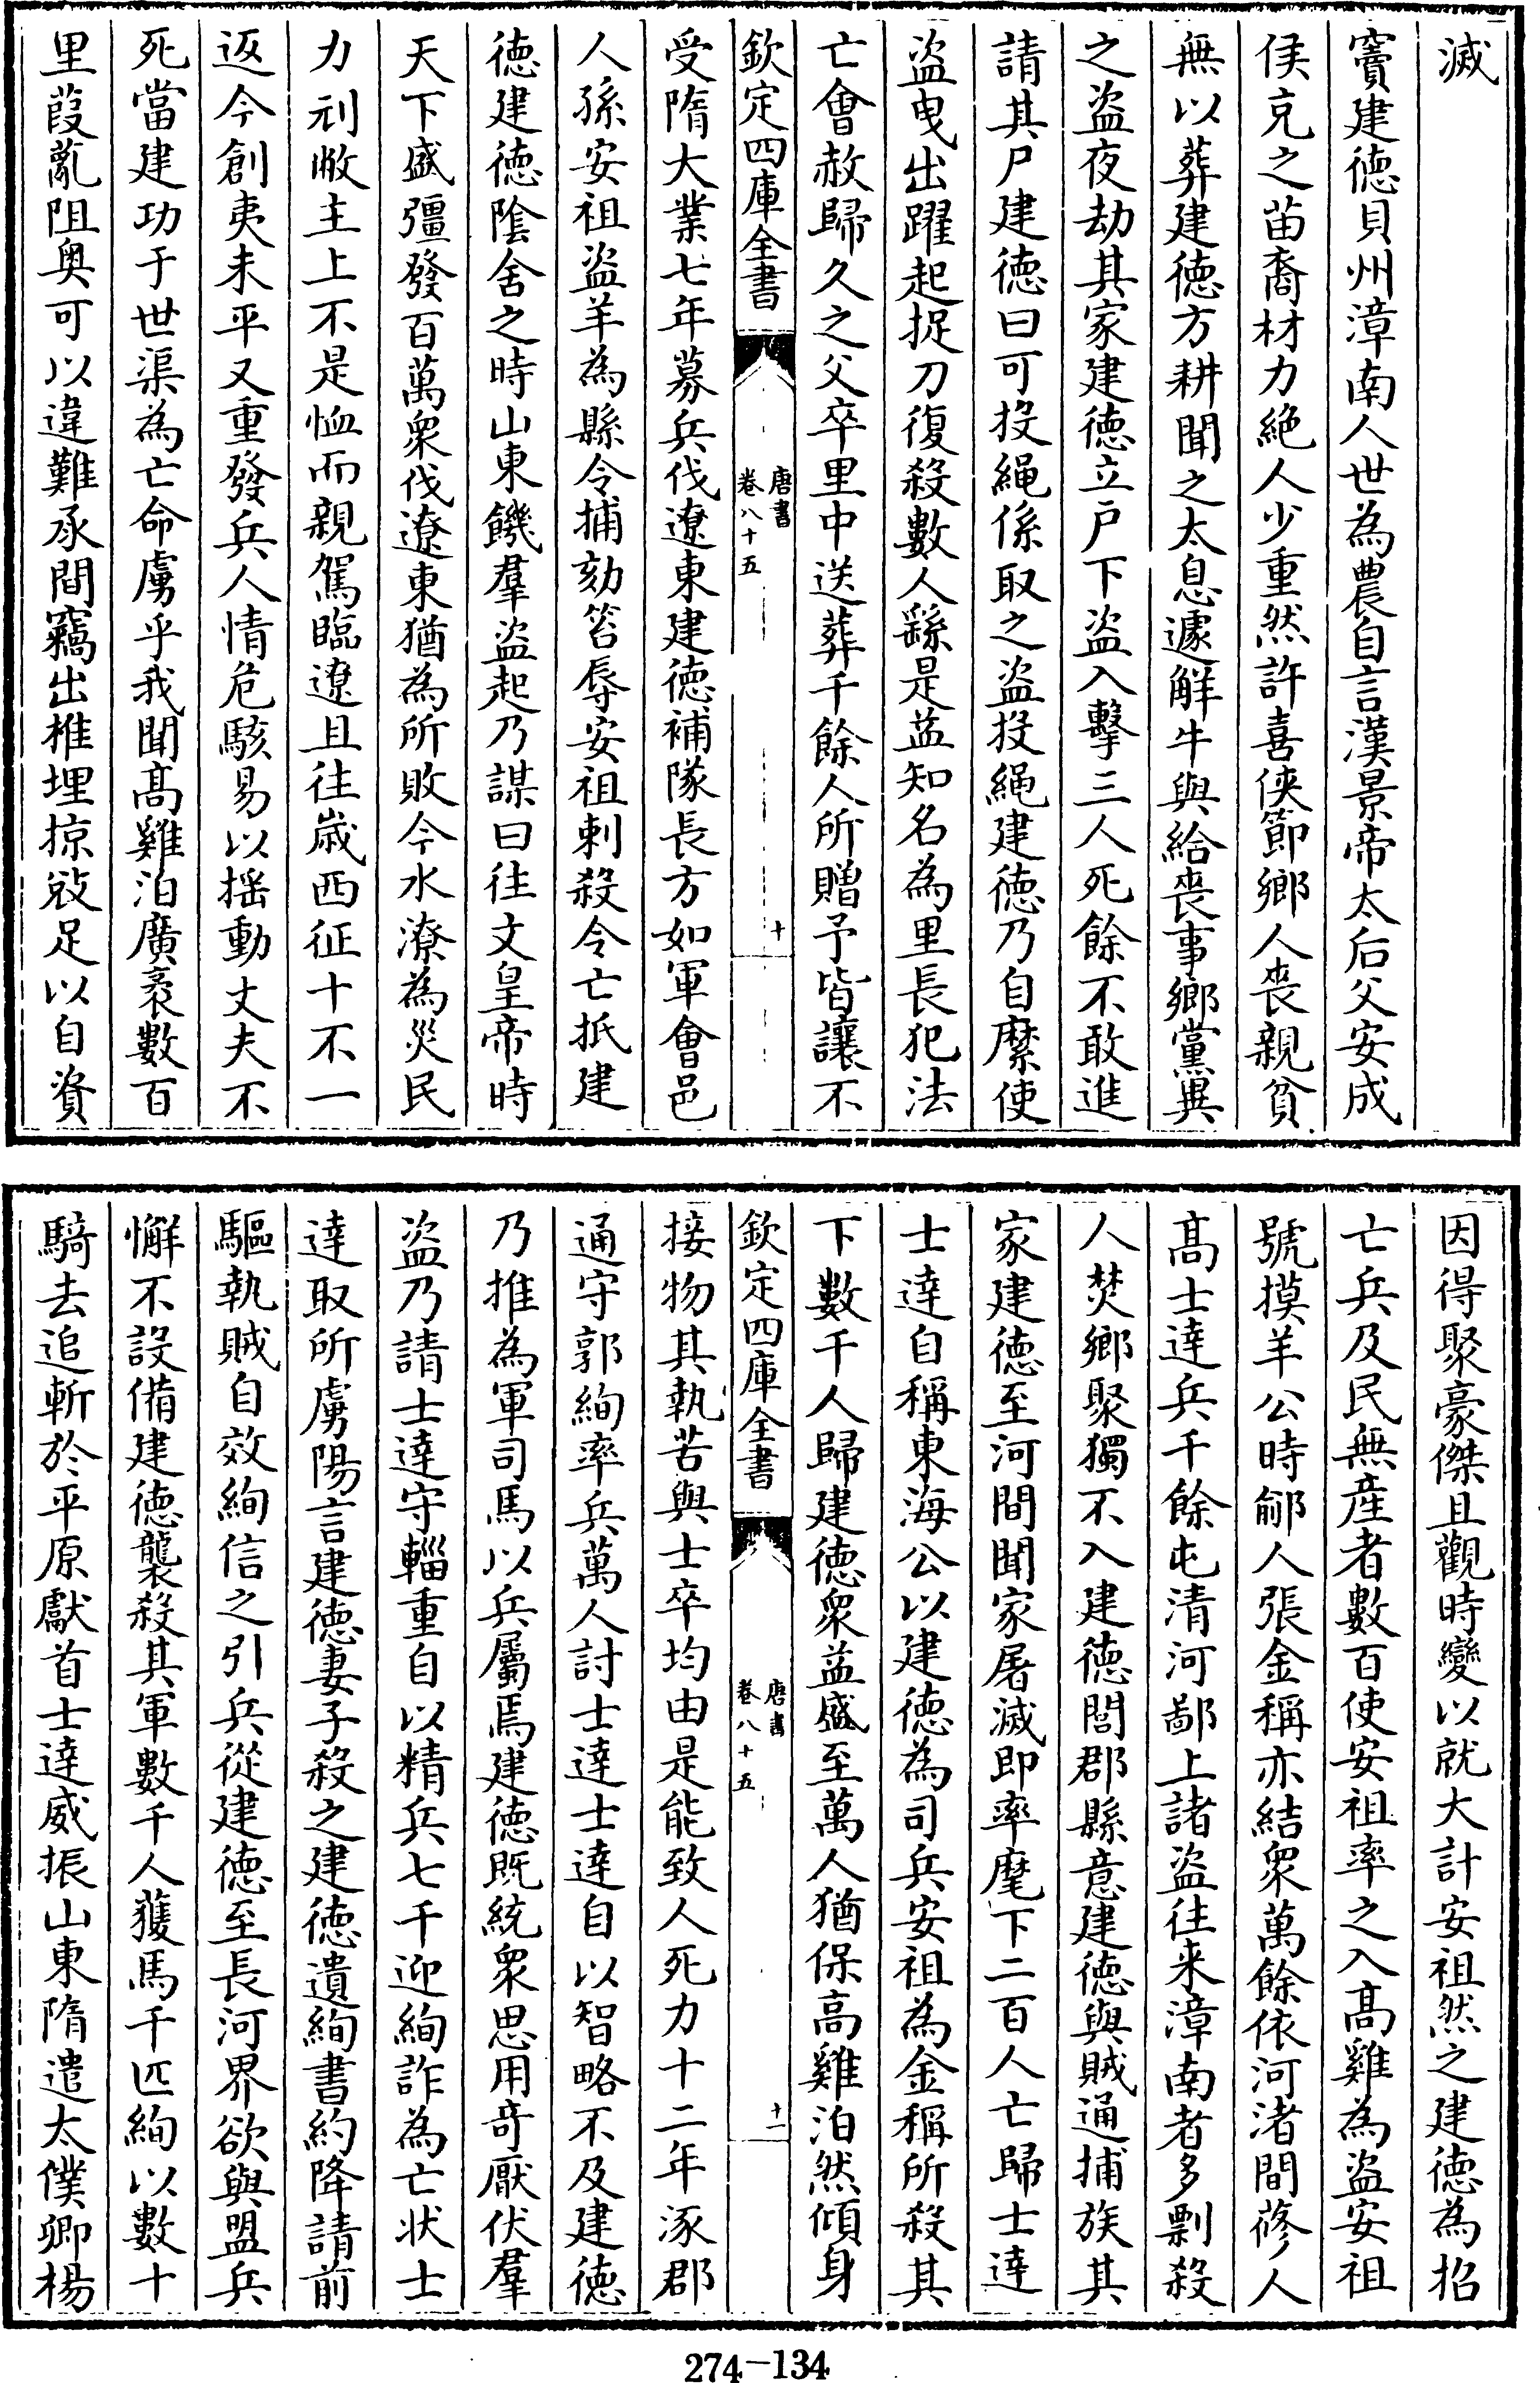 滅
竇建徳貝州漳南人世為農自言漢景帝太后父安成
侯克之苗裔材力絶人少重然許喜俠節鄉人喪親貧
無以葬建徳方耕聞之太息遽解牛與給喪事鄉黨異
之盗夜劫其家建徳立户下盗入擊三人死餘不敢進
請其尸建徳曰可投繩係取之盗投繩建徳乃自縻使
盗曳出躍起捉刀復殺數人繇是益知名為里長犯法
亡會赦歸久之父卒里中送葬千餘人所贈予皆讓不
欽定四庫全書
唐書
卷八十五
十
受隋大業七年募兵伐遼東建徳補隊長方如軍會邑
人孫安祖盗羊為縣令捕劾笞辱安祖刺殺令亡抵建
徳建徳陰舍之時山東饑羣盗起乃謀曰往文皇帝時
天下盛彊發百萬衆伐遼東猶為所敗今水潦為災民
力刓敝主上不是恤而親駕臨遼且往歳西征十不一
返今創夷未平又重發兵人情危駭易以揺動丈夫不
死當建功于世渠為亡命虜乎我聞髙雞泊廣袤數百
里葭薍阻奥可以違難承間竊出椎埋掠敓足以自資
因得聚豪傑且觀時變以就大計安祖然之建徳為招
亡兵及民無産者數百使安祖率之入髙雞為盗安祖
號摸羊公時鄃人張金稱亦結衆萬餘依河渚間蓨人
髙士逹兵千餘屯清河鄙上諸盗往来漳南者多剽殺
人焚鄉聚獨不入建徳閭郡縣意建徳與賊通捕族其
家建徳至河間聞家屠滅即率麾下二百人亡歸士逹
士逹自稱東海公以建徳為司兵安祖為金稱所殺其
下數千人歸建徳衆益盛至萬人猶保高雞泊然傾身
欽定四庫全書
唐書
卷八十五
十一
接物其執苦與士卒均由是能致人死力十二年涿郡
通守郭絢率兵萬人討士逹士逹自以智略不及建徳
乃推為軍司馬以兵屬焉建徳既統衆思用奇厭伏羣
盗乃請士逹守輜重自以精兵七千迎絢詐為亡狀士
逹取所虜陽言建徳妻子殺之建徳遺絢書約降請前
驅執賊自效絢信之引兵從建徳至長河界欲與盟兵
懈不設備建徳襲殺其軍數千人獲馬千匹絢以數十
騎去追斬於平原獻首士逹威振山東隋遣太僕卿楊
274-134